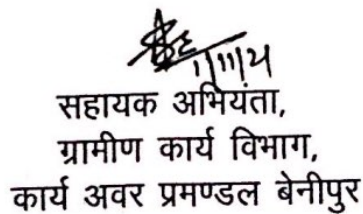 1/11/21
सहायक अभियंता,
ग्रामीण कार्य विभाग,
कार्य अवर प्रमण्डल बेनीपुर